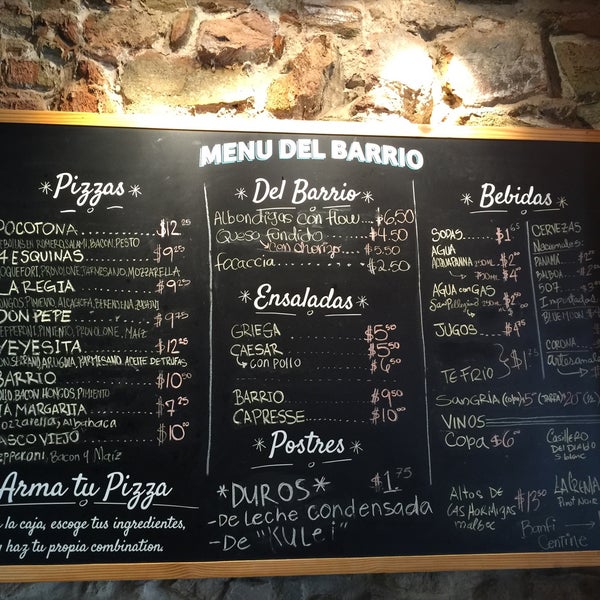 MENU DEL BARRIO
*Pizzas*
POCOTONA $12.25
ROMERO, SALAMI, BACON, PESTO
4 ESQUINAS $9.25
PROVOLONE, PARMESANO, MOZZARELLA
LA REGIA $9.25
DON PEPE $9.75
PEPPERONI, PIMIENTO, PROVOLONE, MAIZ
YEYESITA $12.25
ARUGULA, PARMESANO, ACEITE DE TRUFAS
BARRIO $10.00
BACON, HONGOS, PIMIENTO
LA MARGARITA $7.25
Mozzarella, Albahaca
CASCO VIEJO $10.00
Pepperoni, Bacon y Maiz
Arma tu Pizza
la caja, escoge tus ingredientes,
y haz tu propia combination.
*Del Barrio*
Albondigas con flow $6.50
Queso fundido $4.50
con chorizo $5.50
focaccia $2.50
*Ensaladas*
GRIEGA $5.50
CAESAR $5.50
CON POLLO $6.50
BARRIO $9.50
CAPRESSE $10.00
*Postres*
*DUROS* $1.75
-De leche condensada
-De "KULEI"
*Bebidas*
SODAS $1.65
AGUA
ACQUAPANNA 250ml $2
750ml $4
AGUA CON GAS
San Pellegrino 250ml $2
JUGOS
TE FRIO $1.75
CERVEZAS
Nacionales:
PANAMÁ
BALBOA
507
Importadas
BLUE MOON
CORONA
Artesanales
SANGRIA (copa) $5 (JARRA) $20
VINOS
COPA $6.00
CASILLERO
DEL DIABLO
S. blanc
ALTOS DE $13.50
LAS HORMIGAS
malbec
LA CREMA
PINOT NOIR
Banfi
Centine